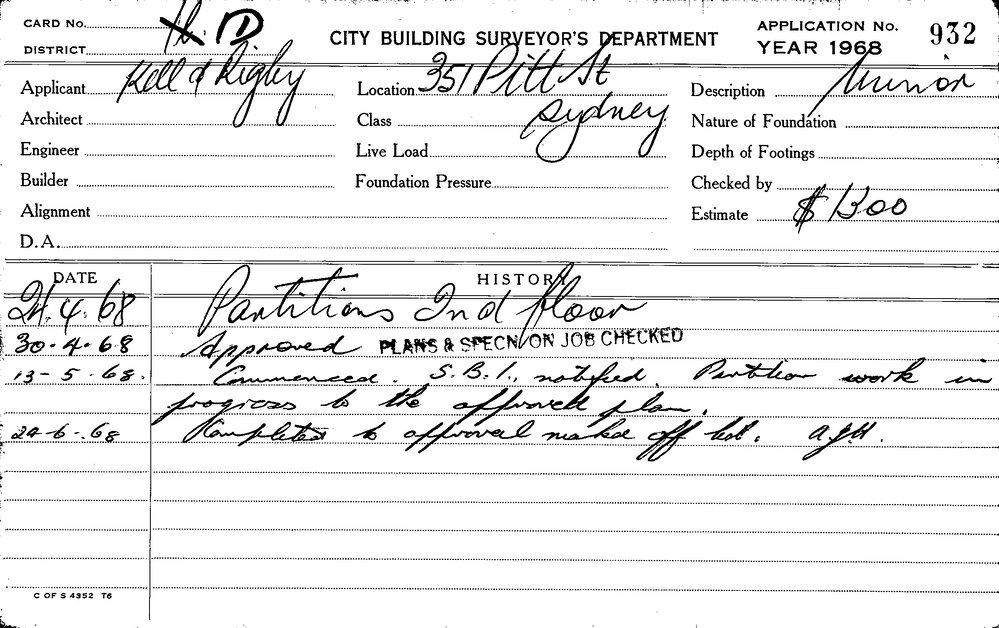 CARD No.
DISTRICT D
CITY BUILDING SURVEYOR'S DEPARTMENT
APPLICATION No. 932
YEAR 1968
Applicant Kell & Rigby
Location 351 Pitt St
Description Minor
Architect
Class Sydney
Nature of Foundation
Engineer
Live Load
Depth of Footings
Builder
Foundation Pressure
Checked by
Alignment
Estimate $1300
D.A.
DATE HISTORY
4.68 Partitions 2nd floor
30.4.68 Approved PLANS & SPECN/ON JOB CHECKED
13-5.68. Commenced. S.B.I., notified. Partition work in
progress to the approved plan.
24-6-.68 Completed to approval marked off list.
C OF S 4352 T6